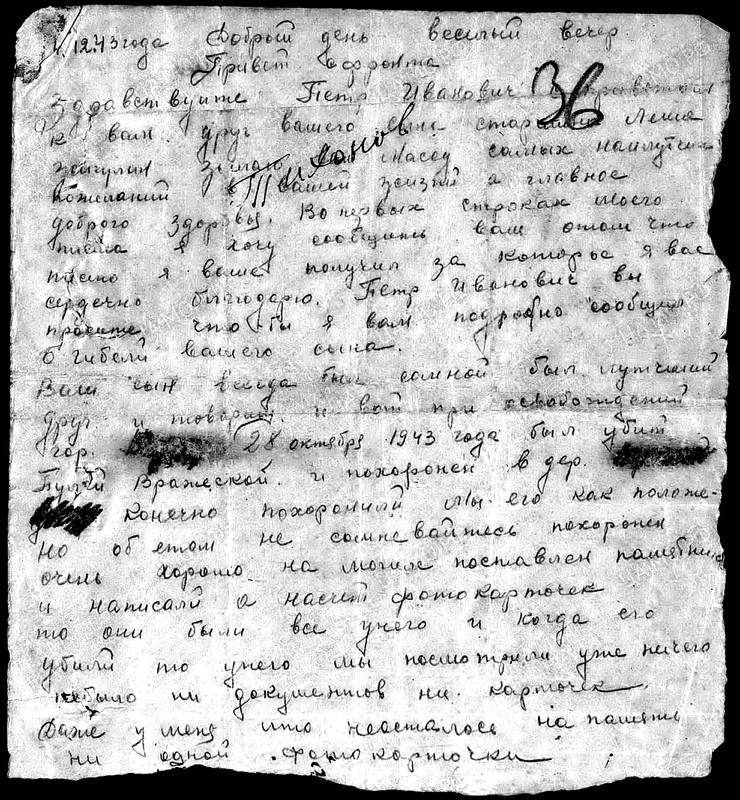 1943 года Добрый день веселый вечер
Привет с фронта
36
Здравствуйте Петр Иванович
к вам друг вашего сына старшина Леша
Тиханов
масу самых наилутших
пожеланий в вашей жизни а главное
доброго здоровья. Во первых строках моего
писма я хочу сообщить вам отом что
писмо я ваше получил за которые я вас
сердечно благодарю. Петр Иванович вы
просите что бы я вам подробно сообщил
о гибели вашего сына.
Ваш сын всегда был сомной был лутчший
друг и товарищ и вот при освобождений
гор. 28 октября 1943 года был убит
Пулей Вражеской и похоронен в дер.
Конечно похоронили мы его как положе-
но об етом не сомневайтесь похоронен
очень хорошо на могиле поставлен памятник
и написали а насчет фотокарточек
то они были все унего и когда его
убили то унего мы посмотрели уже ничего
небыло ни документов ни карточек.
Даже у меня што неосталось на памяти
ни одной фотокарточки